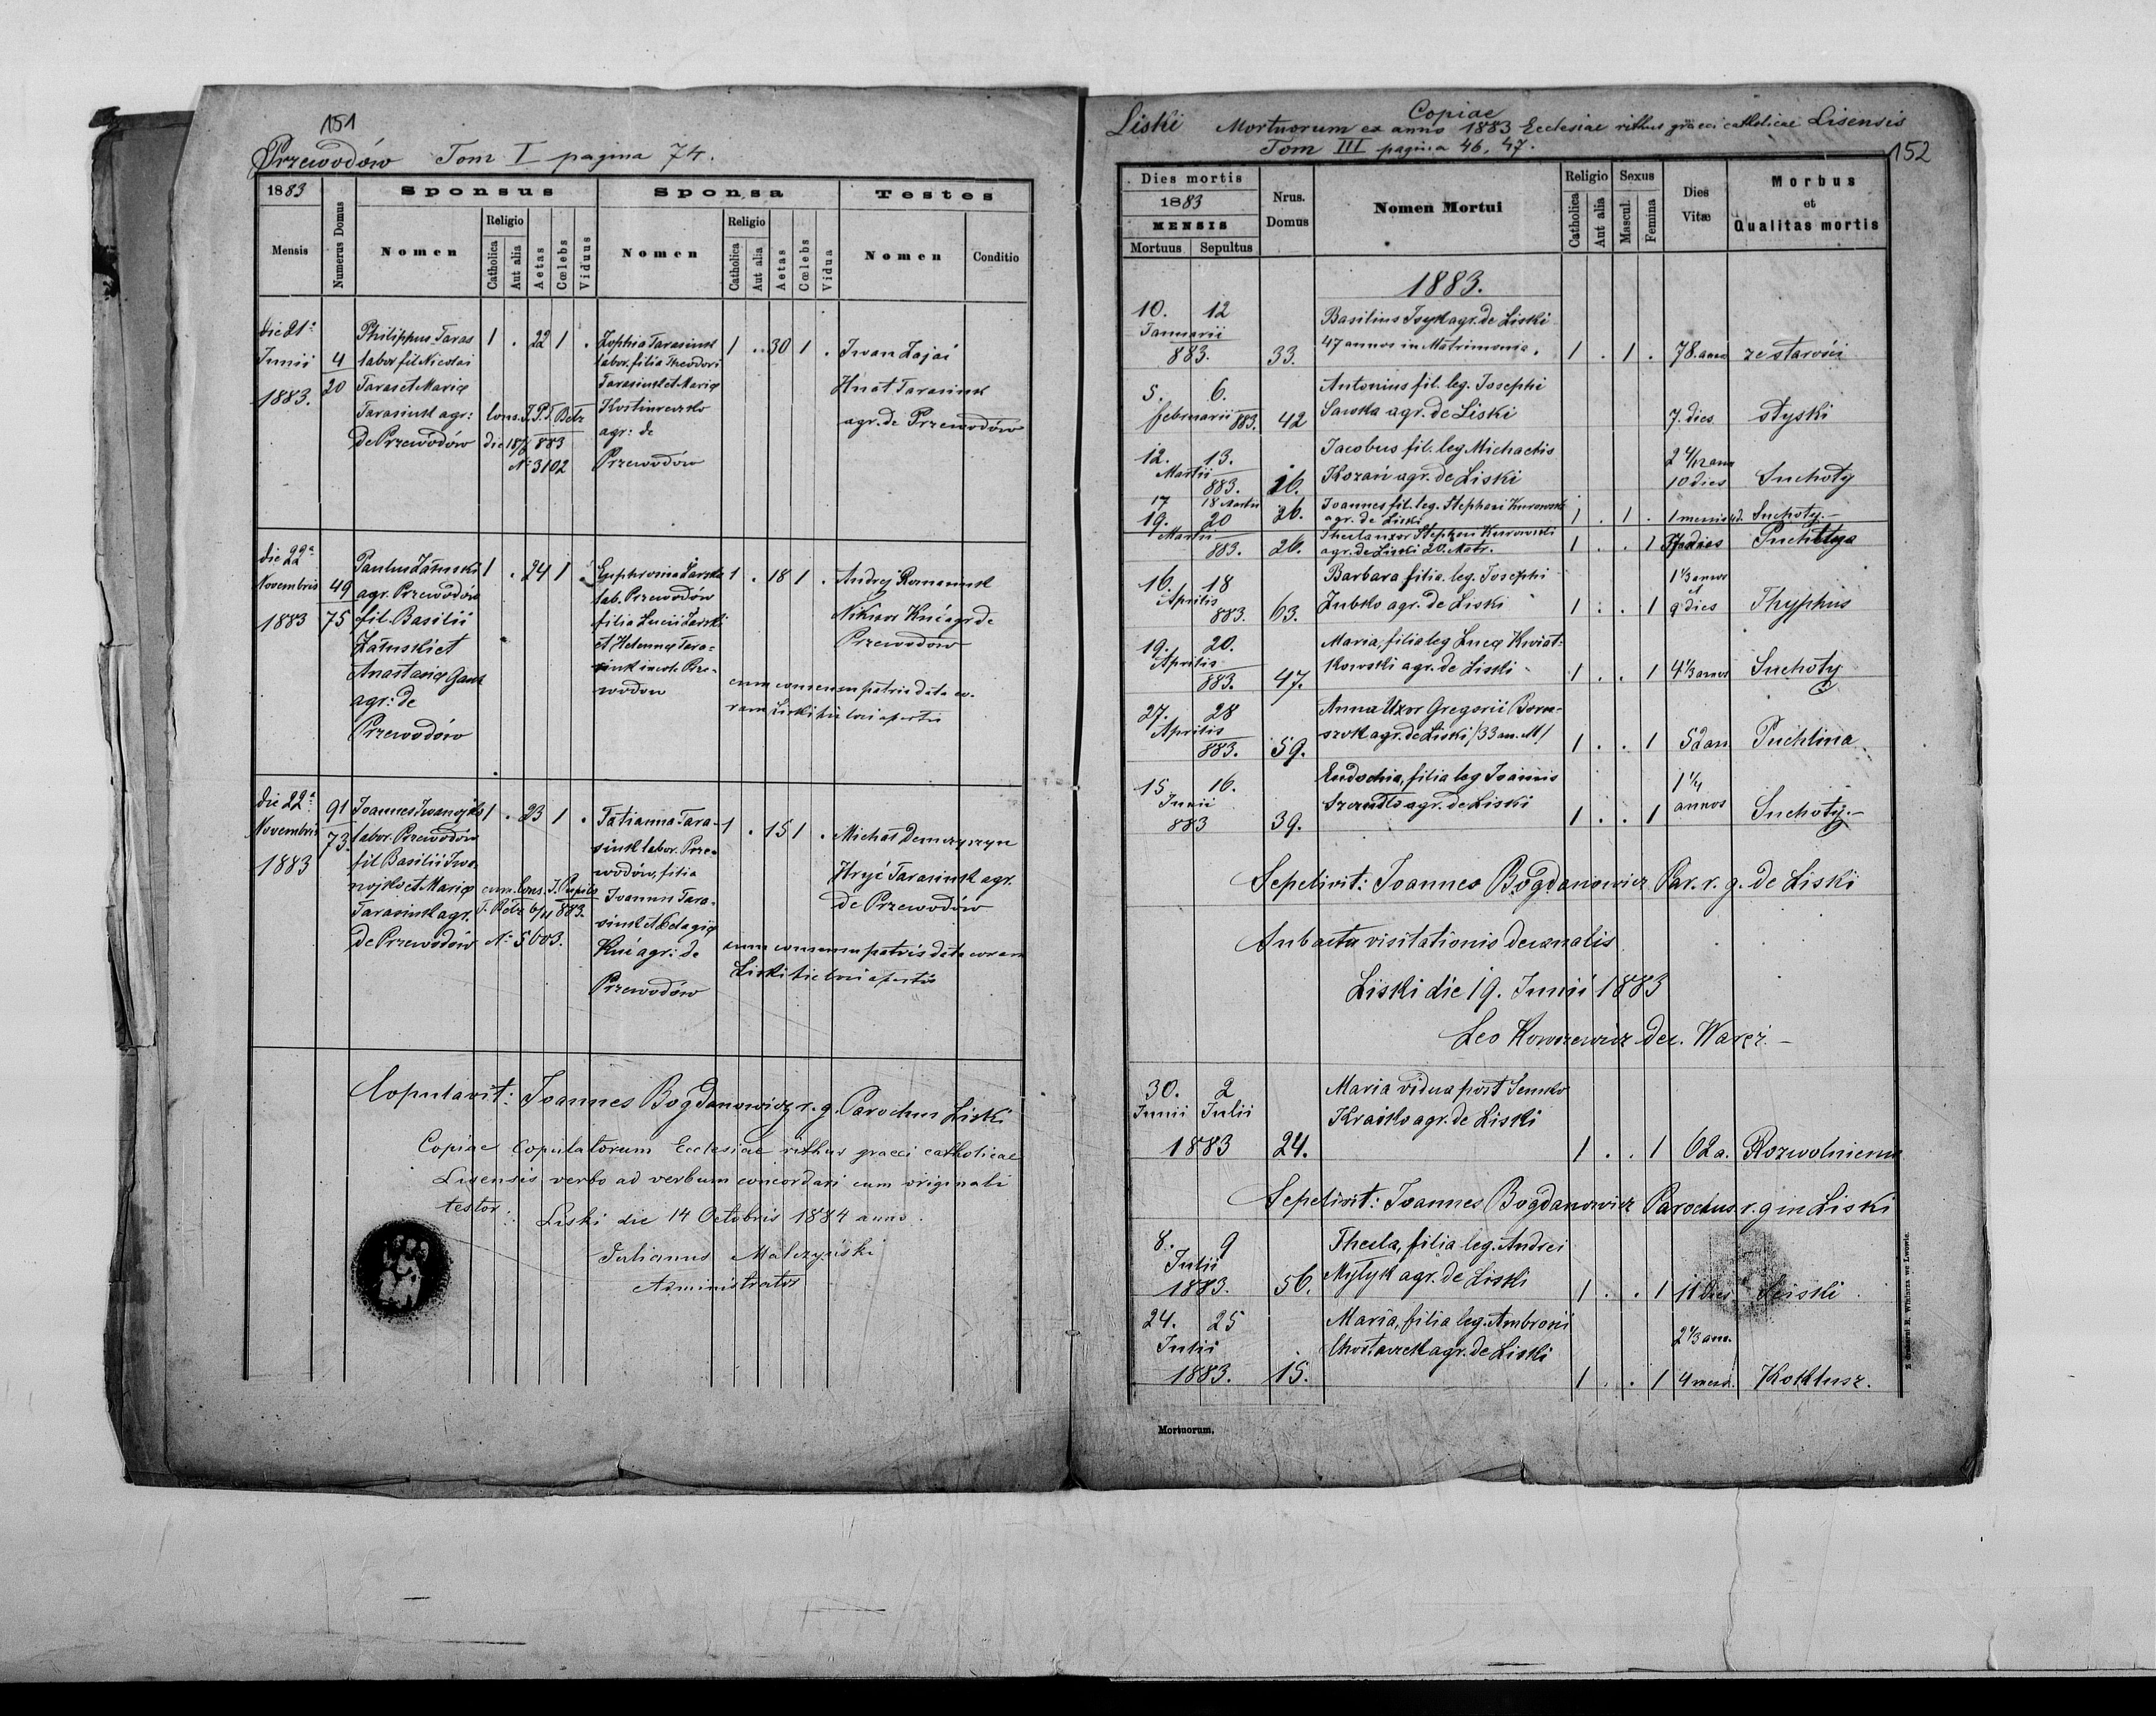 151
Przewodów Tom I pagina 74.
1883
Mensis
Numerus Domus
Sponsus
Nomen
Religio
Catholica
Aut alia
Aetas
Cœlebs
Viduus
Sponsa
Nomen
Religio
Catholica
Aut alia
Aetas
Cœlebs
Vidua
Testes
Nomen
Conditio
die 21a
Junii
1883.
4
20
Philippus Taras
labor fil Nicolai
Taras et Mariæ
Tarasiuk agr:
de Przewodów
1 . 22 1 .
Cons. J. P. F. Betz
die 18/6 883
No 3102
Zophia Tarasiuk
labor. filia Theodori
Tarasiuk et Mariæ
agr: de
Przewodów
1 . 30 1 .
Iwan Zajai
Hnat Tarasiuk
agr. de Przewodów
die 22a
Novembris
1883
49
75
Paulus Zatuski
agr. Przewodów
fil. Basilii
Zatuski et
Anastasiæ Gauk
agr: de
Przewodów
1 . 24 1 .
Euphrosina Zarska
lab. Przewodów
filia Lucii Zarski
et Helennæ Tara-
siuk incol. Prze-
wodow
1 . 18 1 .
cum consensu patris dato co-
ram Liski
Andrej Romaniuk
Kuć agr de
Przewodów
die 22a
Novembris
1883
91
73.
Joannes Iwanojko
labor. Przewodów
fil Basilii Iwa-
nojko et Mariæ
Tarasiuk agr.
de Przewodów
1 . 23 1 .
cum. Cons. J. Pupil
F. Betz 6/11 883.
No 5603.
Tatianna Tara-
siuk labor. Prze-
wodów, filia
Joannis Tara-
siuk et Pelagiæ
Kuć agr: de
Przewodów
1 . 15 1 .
cum consensu patris dato coram
Liski
Michał Demczyszyn
Hryć Tarasiuk agr.
de Przewodów
Copulavit: Joannes Bogdanowicz r. g. Parochus Liski
Copiae copulatorum Ecclesiae rithus graeci catholicae
Lisensis verbo ad verbum concordari cum originali
testor:
Liski die 14 Octobris 1884 anno.
Julianus Malczyński
Administrator
152
Liski
Copiae
Mortuorum ex anno 1883 Ecclesiae rithus graeci catholicae Lisensis
Tom III pagina 46, 47.
Dies mortis
1883
MENSIS
Mortuus
Sepultus
Nrus.
Domus
Nomen Mortui
Religio
Catholica
Aut alia
Sexus
Mascul.
Femina
Dies
Vitæ
Morbus
et
Qualitas mortis
1883.
10. 12
Januarii
883.
33.
Basilius Isyk agr. de Liski
47 annos in Matrimonio.
1 . 1 . 78. ann ze starości
5. 6.
Februarii 883. 42
Antonius fil. leg. Josephi
Sawka agr. de Liski
7. dies styski
12. 13.
Martii
883. 16.
Jacobus fil. leg Michaelis
Kozań agr. de Liski
2 4/12 ann
10 dies Suchoty
17 18 Martii 26.
Joannes fil. leg. Stephani Kurowski
agr. de Liski
1 . 1 . 1 mensis Suchoty.-
19. 20
Martii
883. 26.
Thecla uxor Stephani Kurowski
agr. de Liski 20. Matr.
1 . . 1
16. 18
Aprilis
883. 63.
Barbara filia. leg. Josephi
Zubko agr. de Liski
1 . . 1
1 1/3 annos
et
9 dies Thyphus
19. 20.
Aprilis
883. 47.
Maria, filia leg Lucæ Kwiat-
kowski agr. de Liski
1 . . 1 4 1/3 annos Suchoty
27. 28
Aprilis
883. 59.
Anna Uxor Gregorii Born-
szok agr. de Liski /33 an. M/
1 . . 1 52 an Puchlina
15 16.
Junii
883 39.
Eudochia, filia leg Joannis
agr. de Liski
1 . . 1
1 1/4
annos Suchoty.-
Sepelivit: Joannes Bogdanowicz Par. r. g. de Liski
Subacta visitationis decanalis
Liski die 19. Junii 1883
Leo Kowszewicz dec. Waręz.-
30. 2
Junii Julii
1883 24.
Maria vidua post Semko
Krasko agr. de Liski
1 . . 1 62 a. Rozwolnienie
Sepelivit: Joannes Bogdanowicz Parochus r. g in Liski
8. 9
Julii
1883. 56.
Thecla, filia leg. Andrei
Mytyk agr. de Liski
1 . . 1 11 dies
24. 25
Julii
1883. 15.
Maria, filia leg. Ambrosii
Chostaczek agr. de Liski
1 . . 1
2 1/3 ann.
4 mens. Kokłusz.
Mortuorum.
Z drukarni E. Winiarza we Lwowie.